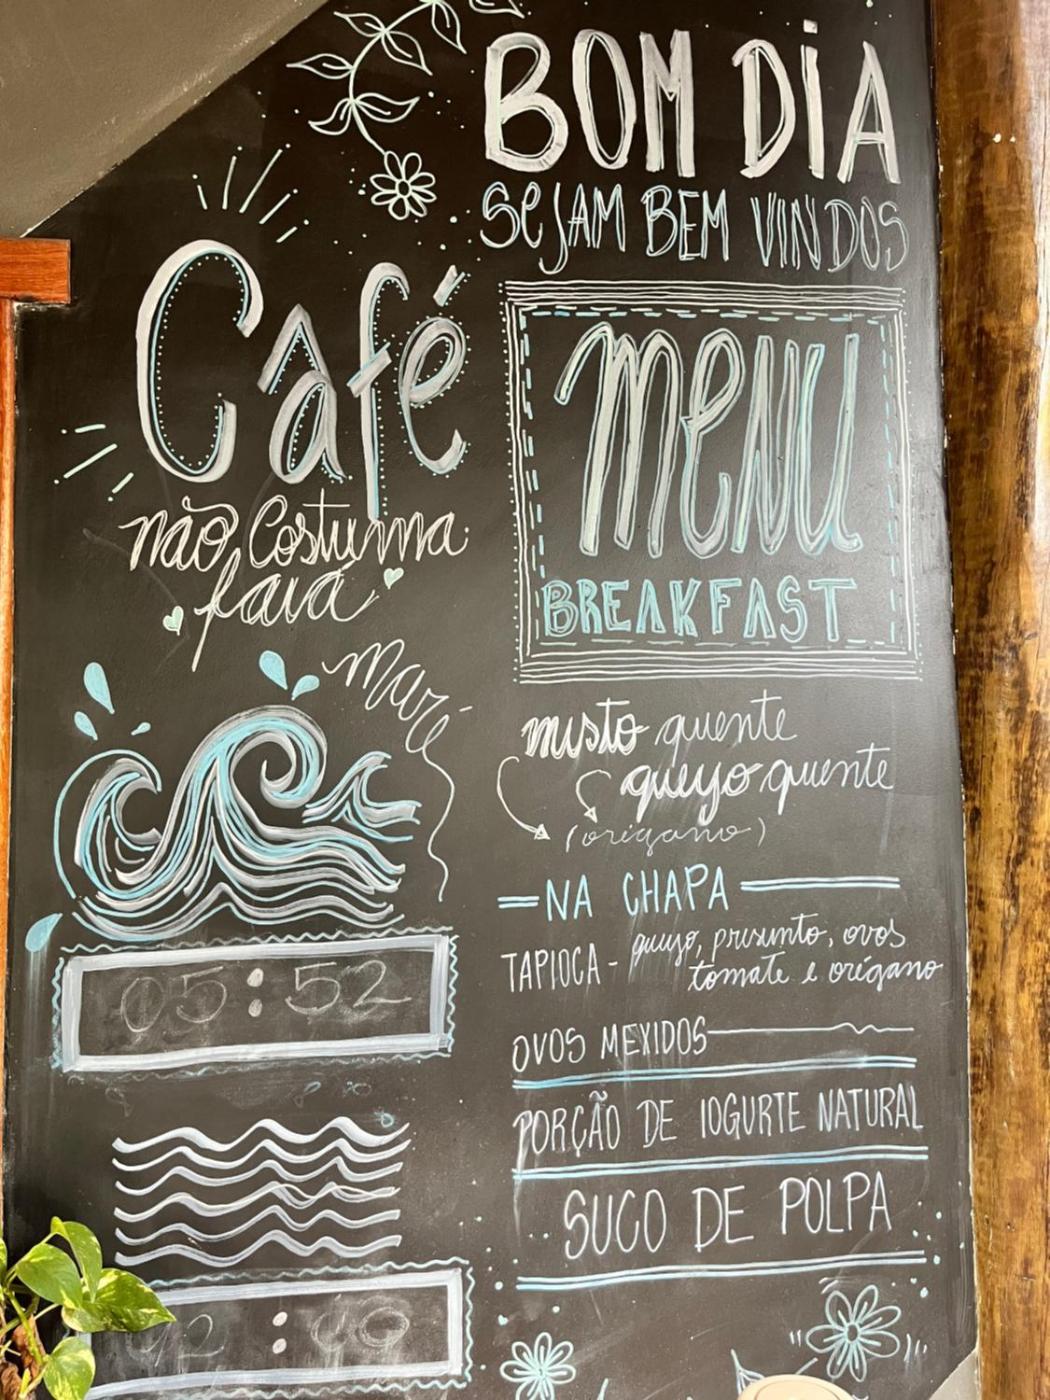 BOM DiA
SeJAM BEM VINDOS
Café
não costuma
faiá
maré
05:52
menu
BREAKFAST
misto quente
queijo quente
(orégano)
NA CHAPA
TAPIOCA - queijo, presunto, ovos
tomate e orégano
OVOS MEXIDOS
PORÇÃO DE IOGURTE NATURAL
SUCO DE POLPA